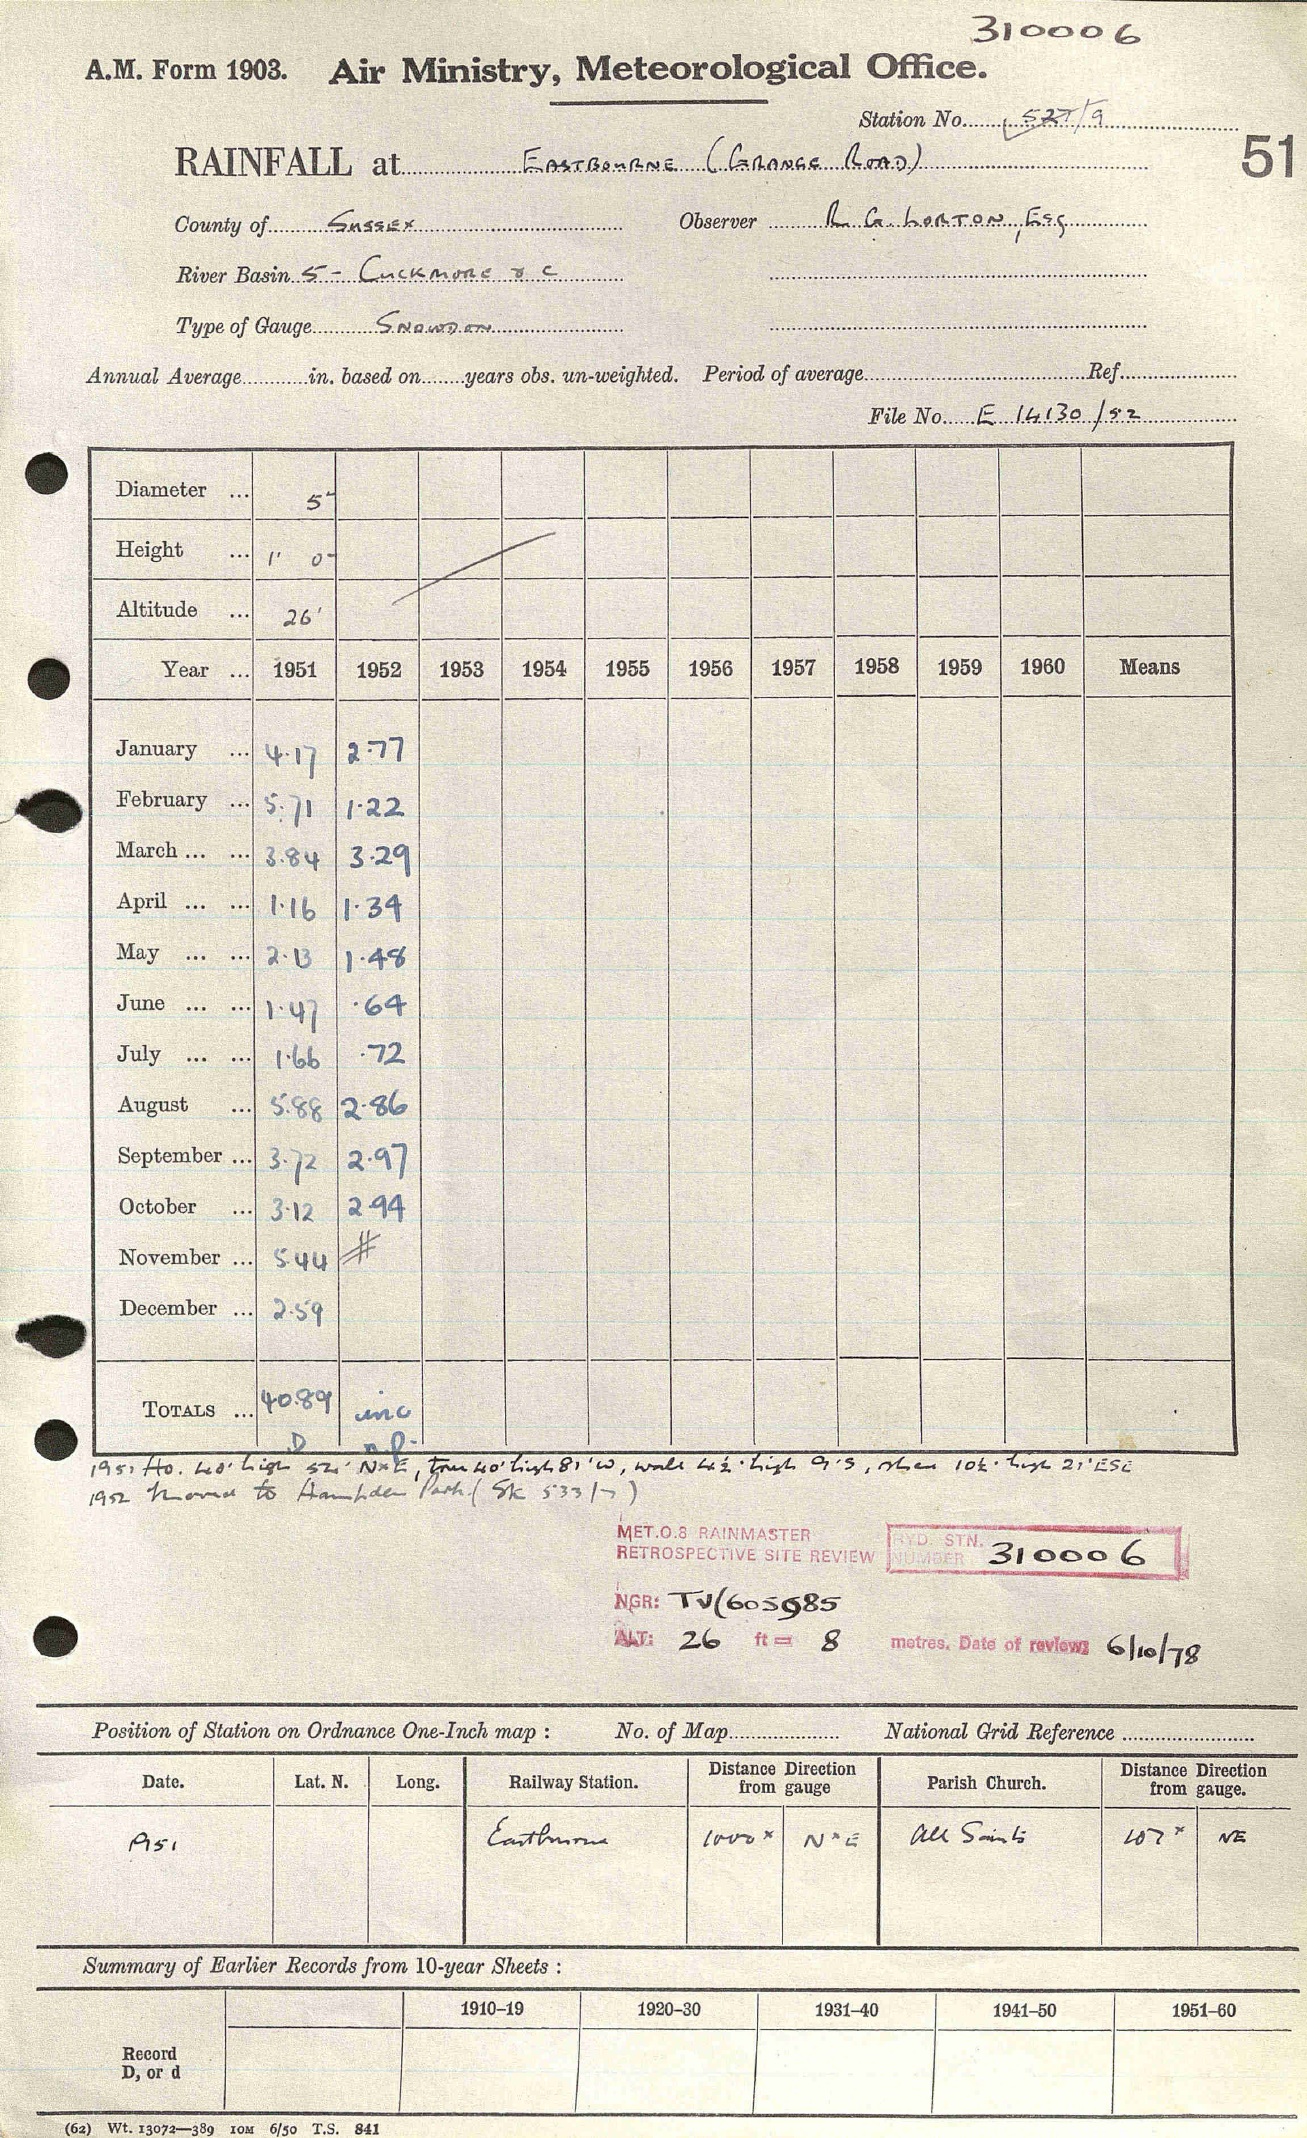 310006
A.M. Form 1903. Air Ministry, Meteorological Office.
Station No. 527/9
RAINFALL at EASTBOURNE (GRANGE ROAD)
51
County of SUSSEX Observer R. G. LORTON, ESQ
River Basin 5 - CUCKMORE & C
Type of Gauge SNOWDON
Annual Average in. based on years obs. un-weighted. Period of average Ref.
File No. E 14130/52
Diameter ... 5"
Height ... 1' 0"
Altitude ... 26'
Year ... 1951 1952 1953 1954 1955 1956 1957 1958 1959 1960 Means
January ... 4.17 2.77
February ... 5.71 1.22
March ... ... 3.84 3.29
April ... ... 1.16 1.34
May ... ... 2.13 1.48
June ... ... 1.47 .64
July ... ... 1.66 .72
August ... 5.88 2.86
September ... 3.72 2.97
October ... 3.12 2.94
November ... 5.44 #
December ... 2.59
TOTALS ... 40.89 inc
D n.p.
1951 Ho. 40' high 52' NxE, tree 40' high 81' W, wall 4½' high 9' S, shed 10½' high 21' ESE
1952 Moved to Hampden Park (SK 533/7)
MET.O.8 RAINMASTER
RETROSPECTIVE SITE REVIEW
RYD. STN. NUMBER 310006
NGR: TV(605985
ALT: 26 ft = 8 metres. Date of review: 6/10/78
Position of Station on Ordnance One-Inch map : No. of Map National Grid Reference
Date. Lat. N. Long. Railway Station. Distance Direction from gauge Parish Church. Distance Direction from gauge.
1951 Eastbourne 1000x NxE All Saints 107x NE
Summary of Earlier Records from 10-year Sheets :
1910–19 1920–30 1931–40 1941–50 1951–60
Record
D, or d
(62) Wt. 13072—389 10M 6/50 T.S. 841